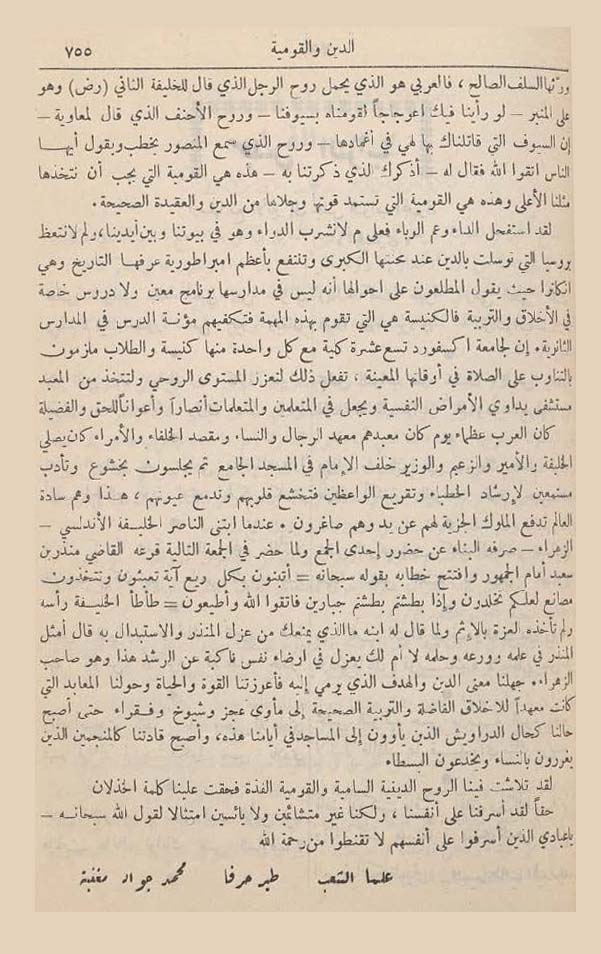 الدين والقومية
٧٥٥
ورثها السلف الصالح، فالعربي هو الذي يحمل روح الرجل الذي قال للخليفة الثاني (رض) وهو
على المنبر – لو رأينا فيك اعوجاجاً لقومناه بسيوفنا – وروح الأحنف الذي قال لمعاوية –
إن السيوف التي قاتلناك بها لهي في أغمادها – وروح الذي سمع المنصور يخطب ويقول أيها
الناس اتقوا الله فقال له – أذكرك الذي ذكرتنا به – هذه هي القومية التي يجب أن نتخذها
مثلنا الأعلى وهذه هي القومية التي تستمد قوتها وجلاها من الدين والعقيدة الصحيحة.
لقد استفحل الداء وعم الوباء فعلى م لا نشرب الدواء وهو في بيوتنا وبين أيدينا، ولم لا نتعظ
بروسيا التي توسلت بالدين عند محنتها الكبرى وتنتفع بأعظم امبراطورية عرفها التاريخ وهي
انكلترا حيث يقول المطلعون على احوالها أنه ليس في مدارسها برنامج معين ولا دروس خاصة
في الأخلاق والتربية فالكنيسة هي التي تقوم بهذه المهمة فتكفيهم مؤنة الدرس في المدارس
الثانوية. إن لجامعة اكسفورد تسع عشرة كلية مع كل واحدة منها كنيسة والطلاب ملزمون
بالتناوب على الصلاة في أوقاتها المعينة، تفعل ذلك لتعزز المستوى الروحي ولتتخذ من المعبد
مستشفى يداوي الأمراض النفسية ويجعل في المتعلمين والمتعلمات أنصاراً وأعواناً للحق والفضيلة
كان العرب عظماء يوم كان معبدهم معهد الرجال والنساء ومقصد الخلفاء والأمراء كان يصلي
الخليفة والأمير والزعيم والوزير خلف الإمام في المسجد الجامع ثم يجلسون بخشوع وتأدب
مستمعين لإرشاد الخطباء وتقريع الواعظين فتخشع قلوبهم وتدمع عيونهم، هذا وهم سادة
العالم تدفع الملوك الجزية لهم عن يد وهم صاغرون. عندما ابتنى الناصر الخليفة الأندلسي –
الزهراء – صرفه البناء عن حضور إحدى الجمع ولما حضر في الجمعة التالية قرعه القاضي منذر بن
سعيد أمام الجمهور وافتتح خطابه بقوله سبحانه = أتبنون بكل ريع آية تعبثون وتتخذون
مصانع لعلكم تخلدون وإذا بطشتم بطشتم جبارين فاتقوا الله وأطيعون = طأطأ الخليفة رأسه
ولم تأخذه العزة بالإثم ولما قال له ابنه ما الذي يمنعك من عزل المنذر والاستبدال به قال أمثل
المنذر في علمه وورعه وحلمه لا أم لك يعزل في ارضاء نفس ناكبة عن الرشد هذا وهو صاحب
الزهراء. جهلنا معنى الدين والهدف الذي يرمي إليه فأعوزتنا القوة والحياة وحولنا المعابد التي
كانت معهداً للاخلاق الفاضلة والتربية الصحيحة إلى مأوى عجز وشيوخ وفقراء حتى أصبح
حالنا كحال الدراويش الذين يأوون إلى المساجد في أيامنا هذه، وأصبح قادتنا كالمنجمين الذين
يغررون بالنساء ويخدعون البسطاء
لقد تلاشت فينا الروح الدينية السامية والقومية الفذة فحقت علينا كلمة الخذلان
حقاً لقد أسرفنا على أنفسنا، ولكنا غير متشائمين ولا يائسين امتثالا لقول الله سبحانه –
يا عبادي الذين أسرفوا على أنفسهم لا تقنطوا من رحمة الله
علما الشعب طير حرفا محمد جواد مغنية